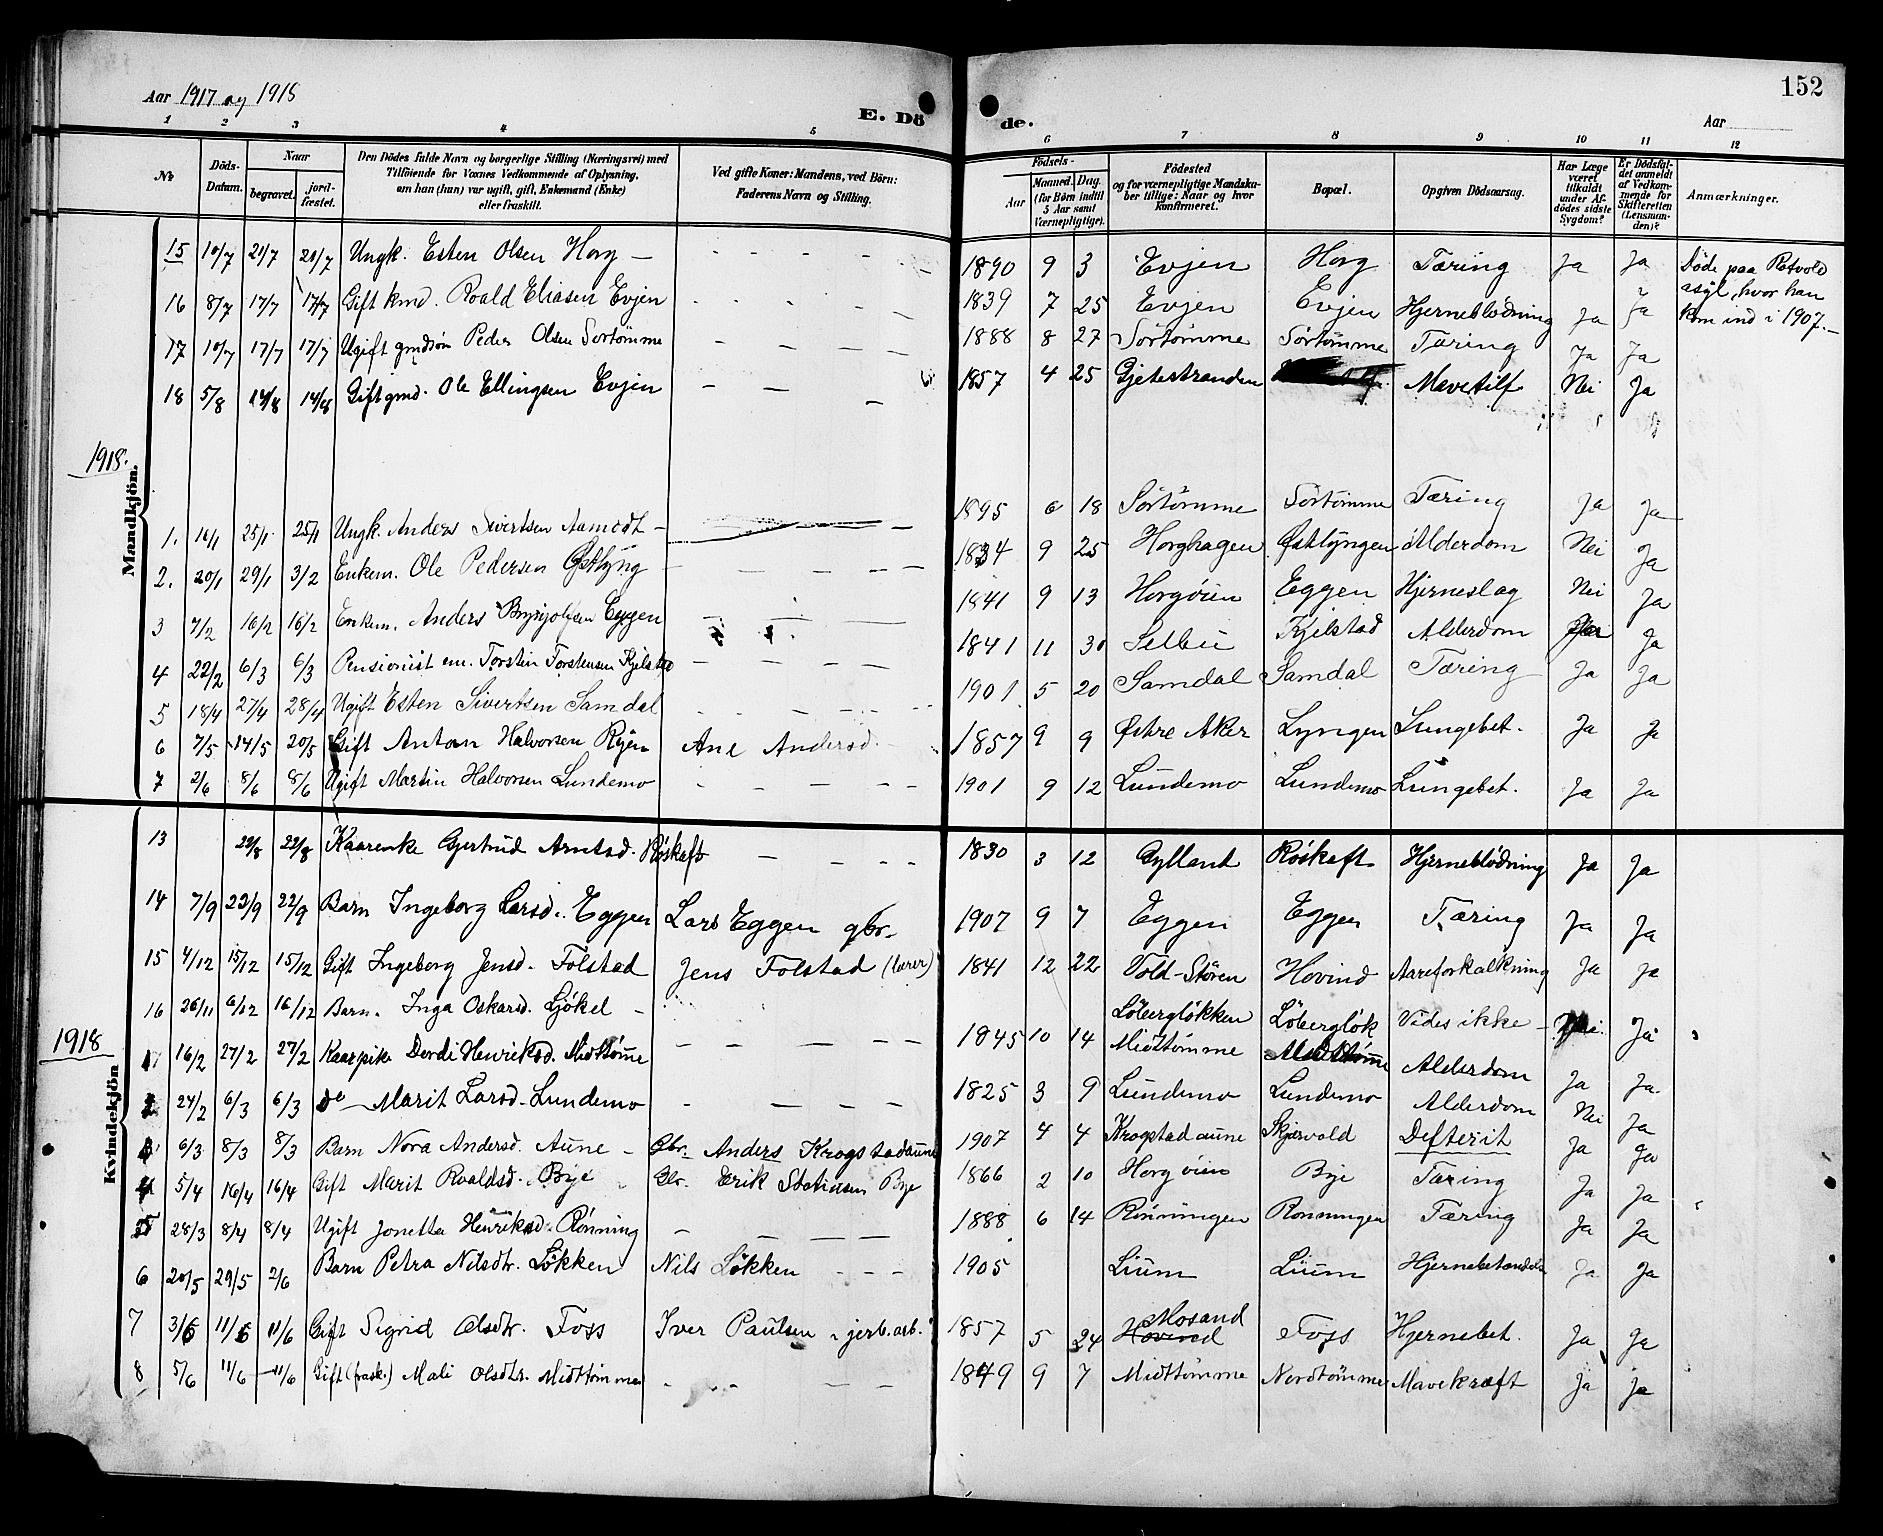 152
Aar 1917 og 1918
E. Döde.
Aar
1 2 3 4 5 6 7 8 9 10 11 12
No
Döds-Datum.
Naar begravet.
jordfæstet.
Den Dödes fulde Navn og borgerlige Stilling (Næringsvei) med Tilföiende for Voxnes Vedkommende af Oplysning, om han (hun) var ugift, gift, Enkemand (Enke) eller fraskilt.
Ved gifte Koner: Mandens, ved Börn: Faderens Navn og Stilling.
Födsels-
Aar
Maaned. Dag. (for Börn indtil 5 Aar samt Værnepligtige).
Födested og for værnepligtige Mandskaber tillige: Naar og hvor konfirmeret.
Bopæl.
Opgiven Dödsaarsag.
Har Læge været tilkaldt under Afdödes sidste Sygdom?
Er Dödsfaldet anmeldt af Vedkommende for Skifteretten (Lensmanden)?
Anmærkninger.
15 10/7 20/7 20/7 Ungk. Esten Olsen Horg — 1890 9 3 Evjen Horg Tæring Ja Ja Döde paa Rotvold asyl, hvor han kom ind i 1907.
16 8/7 17/7 17/7 Gift kmd. Roald Eliasen Evjen 1839 7 25 Evjen Evjen Hjerneblödning Ja Ja
17 10/7 17/7 17/7 Ugift gmdsøn Peder Olsen Sørtømme 1888 8 27 Sørtømme Sørtømme Tæring Ja Ja
18 5/8 14/8 14/8 Gift gmd. Ole Ellingsen Evjen 1857 4 25 Gjetestranden Mavetilf Nei Ja
1918.
Mandkjön.
1. 16/1 25/1 25/1 Ungk. Anders Sivertsen Aamodt — 1895 6 18 Sørtømme Sørtømme Tæring Ja Ja
2. 20/1 29/1 3/2 Enkem. Ole Pedersen Østlyng 1834 9 25 Horghagen Østlyngen Alderdom Nei Ja
3 7/2 16/2 16/2 Enkem. Anders Brynjolfsen Eggen 1841 9 13 Horgøien Eggen Hjerneslag Nei Ja
4 22/2 6/3 6/3 Pensionist em. Torstin Torstensen Kjelstad 1841 11 30 Selbu Kjelstad Alderdom Ja
5 18/4 27/4 28/4 Ugift Esten Sivertsen Samdal 1901 5 20 Samdal Samdal Tæring Ja Ja
6 7/5 14/5 20/5 Gift Anton Halvorsen Ryen Ane Andersd. 1857 9 9 Østre Aker Lyngen Lungebet. Ja Ja
7 2/6 8/6 8/6 Ugift Martin Halvorsen Lundemo 1901 9 12 Lundemo Lundemo Lungebet. Ja Ja
13 22/8 22/8 Kaarenke Gjertrud Arntsd. Röskaft 1830 3 12 Gylland Röskaft Hjerneblödning Ja Ja
14 7/9 22/9 22/9 Barn Ingeborg Larsd. Eggen Lars Eggen gbr. 1907 9 7 Eggen Eggen Tæring Ja Ja
15 4/12 15/12 15/12 Gift Ingeborg Jensd. Folstad Jens Folstad (lærer) 1841 12 22 Vold-Stören Hovind Aareforkalkning Ja Ja
16 26/11 6/12 16/12 Barn. Inga Oskarsd. Gjökel — Löbergløkken Löbergløk Vides ikke — Ja
1918
Kvindekjön
1 16/2 27/2 27/2 Kaarpike Dordi Henriksd. Midttømme 1845 10 14 Midttømme Midttømme Alderdom Ja Ja
2 24/2 6/3 6/3 do — Marit Larsd. Lundemo 1825 3 9 Lundemo Lundemo Alderdom Nei Ja
6/3 8/3 8/3 Barn Nora Andersd. Aune — Gbr. Anders Krogstadaune 1907 4 4 Krogstadaune Skjærvold Defterit Ja Ja
4 5/4 16/4 16/4 Gift Marit Roaldsd. Bye Gbr. Erik Bye 1866 2 10 Horgøien Bye Tæring Ja Ja
5 28/3 8/4 8/4 Ugift Jonetta Henriksd. Rønning 1888 6 14 Rønningen Rønningen Tæring Ja Ja
6 20/5 29/5 2/6 Barn Petra Nilsdtr. Løkken Nils Løkken 1905 Lium Lium Ja Ja
7 3/6 11/6 11/6 Gift Sigrid Olsdtr. Foss Iver Paulsen jerb.arb. 1857 5 24 Hovind Mosand Foss Hjernebet. Ja Ja
8 5/6 11/6 11/6 Gift (frask.) Mali Olsdtr. Midttømme 1849 9 7 Midttømme Nordtømme Mavekræft Ja Ja